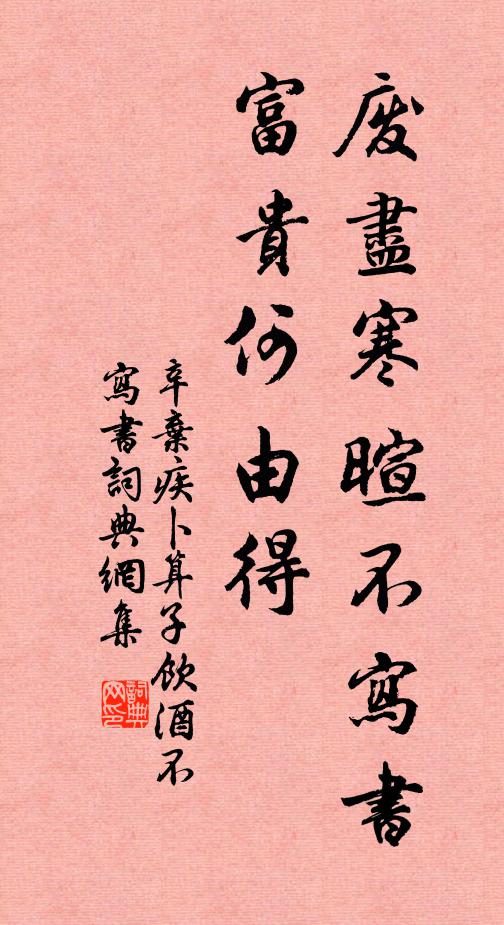 廢盡寒暄不寫書
富貴何由得
辛棄疾卜算子飲酒不
寫書詞典網集
詞典
网印